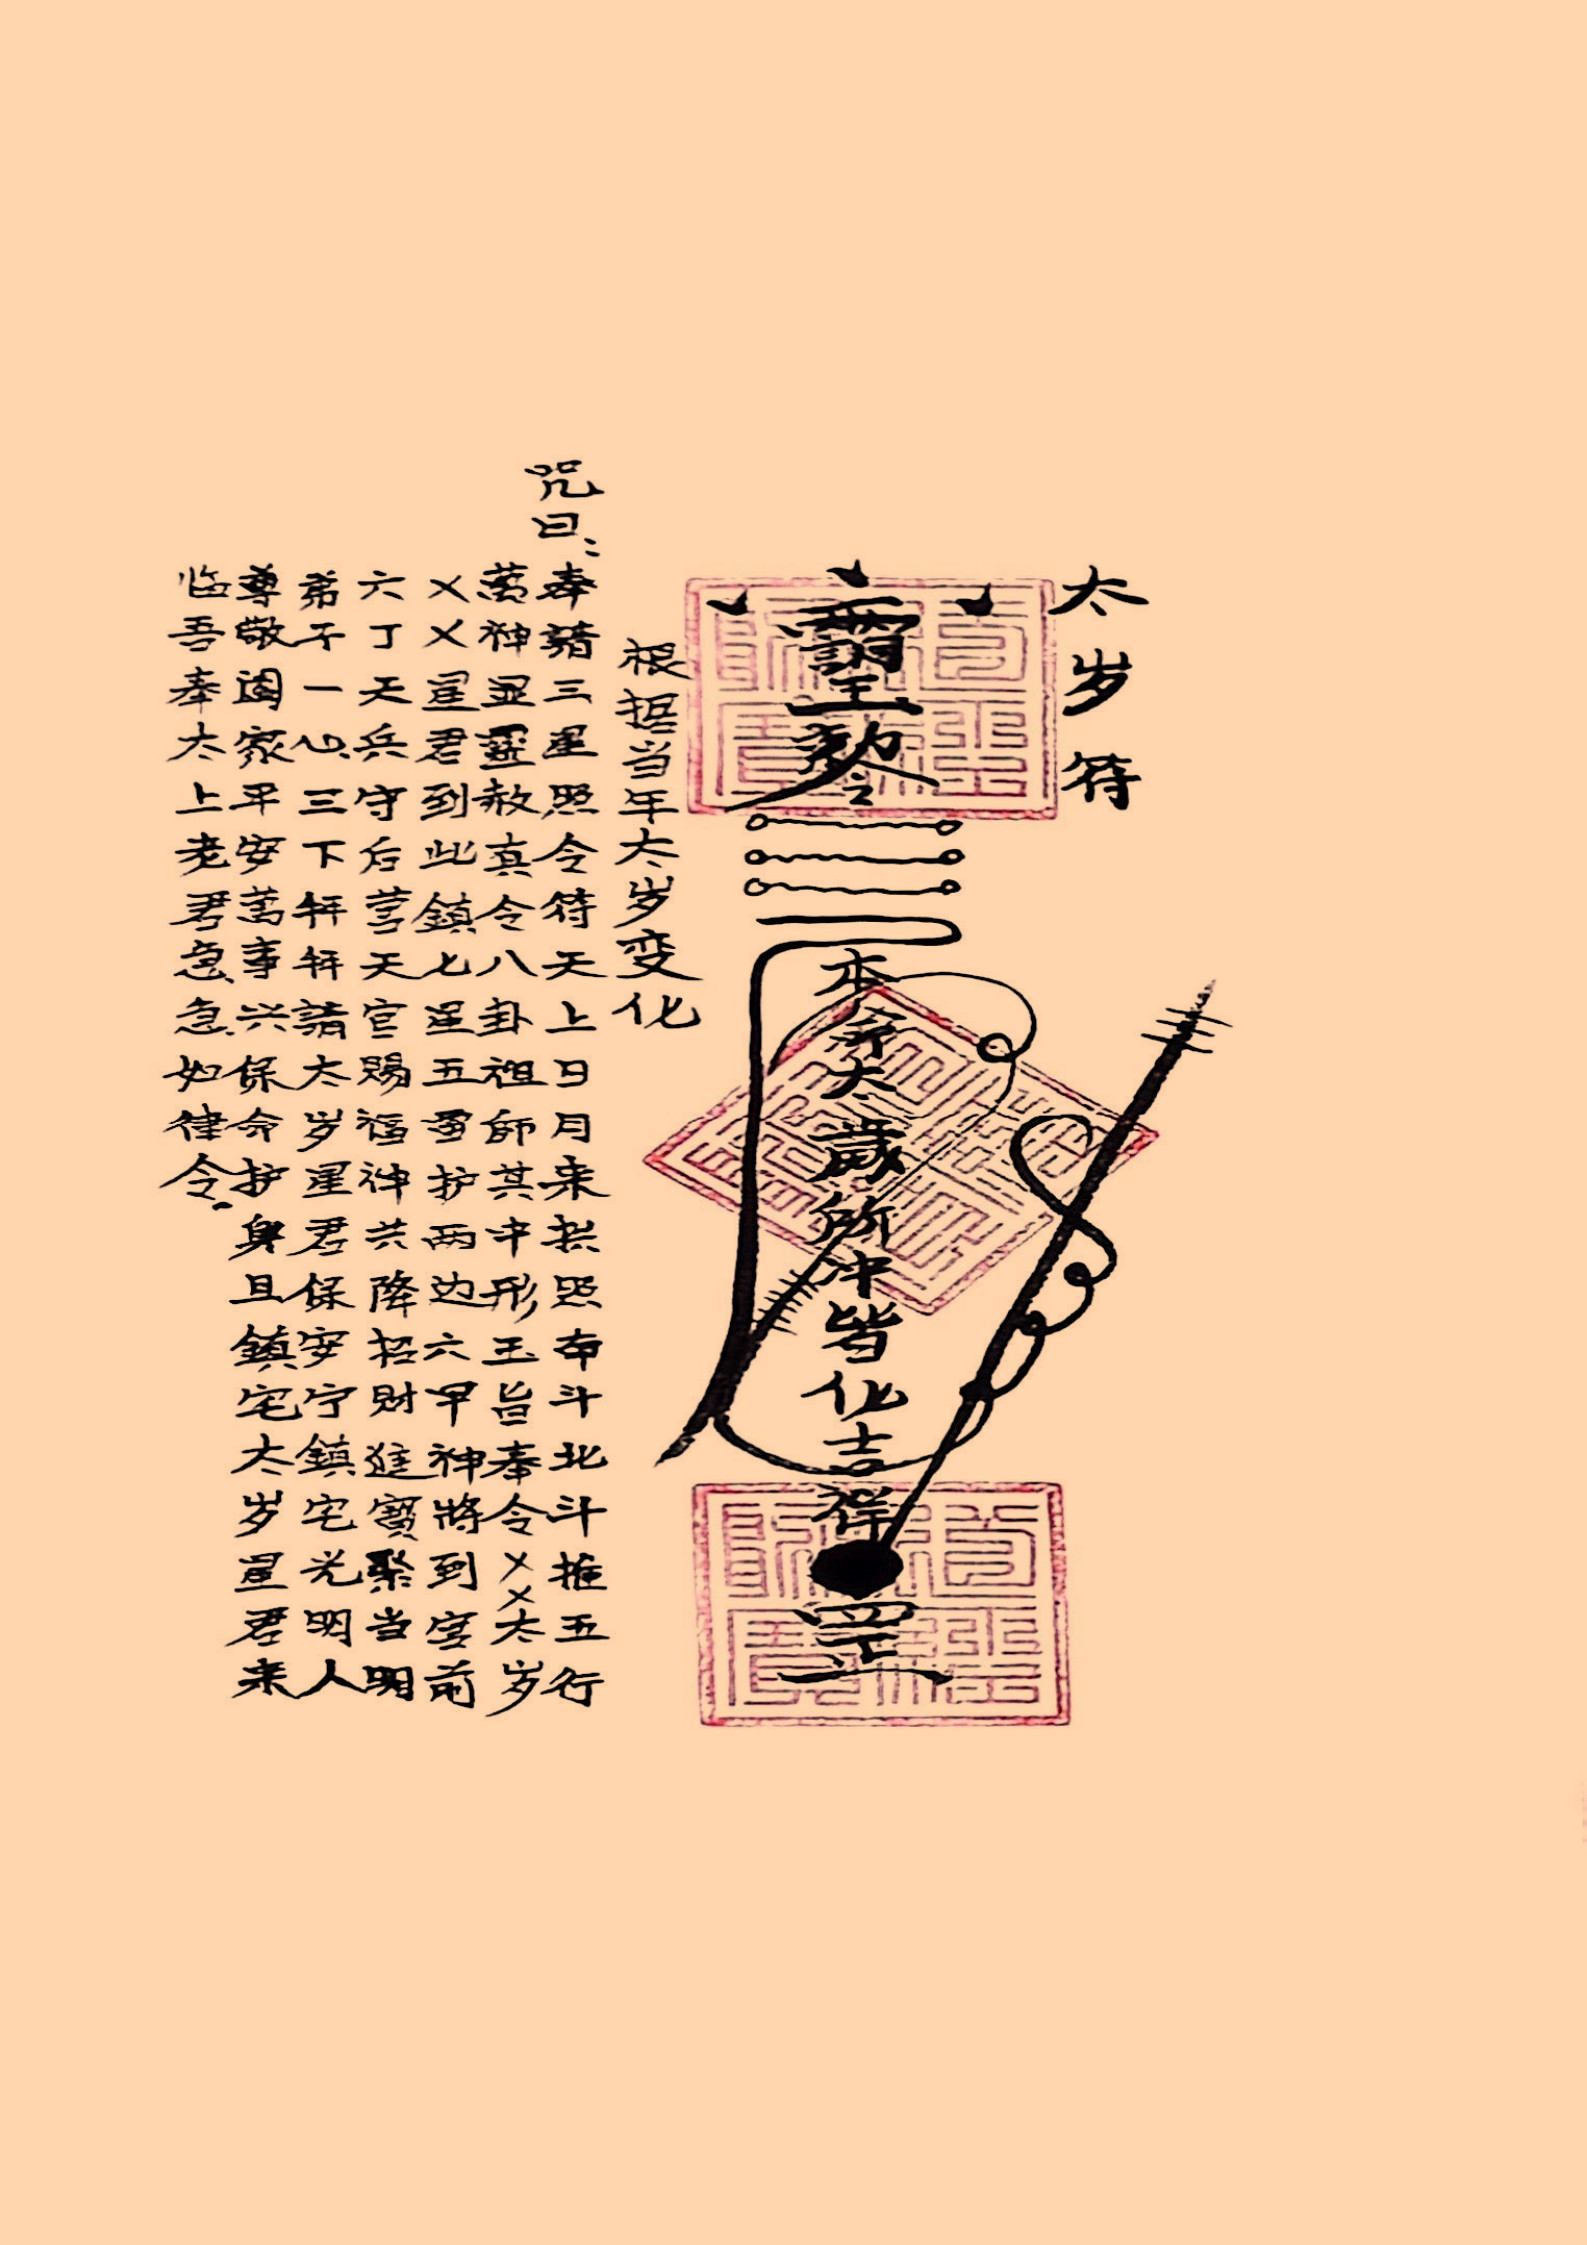 太岁符
玉勅令
本命太歲所冲皆化吉祥
罡
根据当年太岁变化
咒曰:
奉請三星照令符天上日月来拱照南斗北斗推五行
萬神显靈赦真令八卦祖師其中形玉旨奉令乂乂太岁
乂乂星君到此鎮七星五雷护两边六甲神將到宫前
六丁天兵守后营天官賜福神共降招財進寶聚当明
弟子一心三下拜拜請太岁星君保安宁鎮宅光明人
尊敬阖家平安萬事兴保命护身且鎮宅太岁星君来
临吾奉太上老君急急如律令。